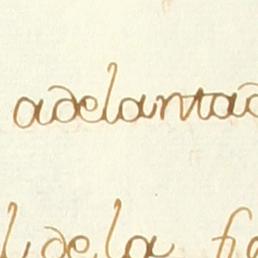 adelantad
l dela fi